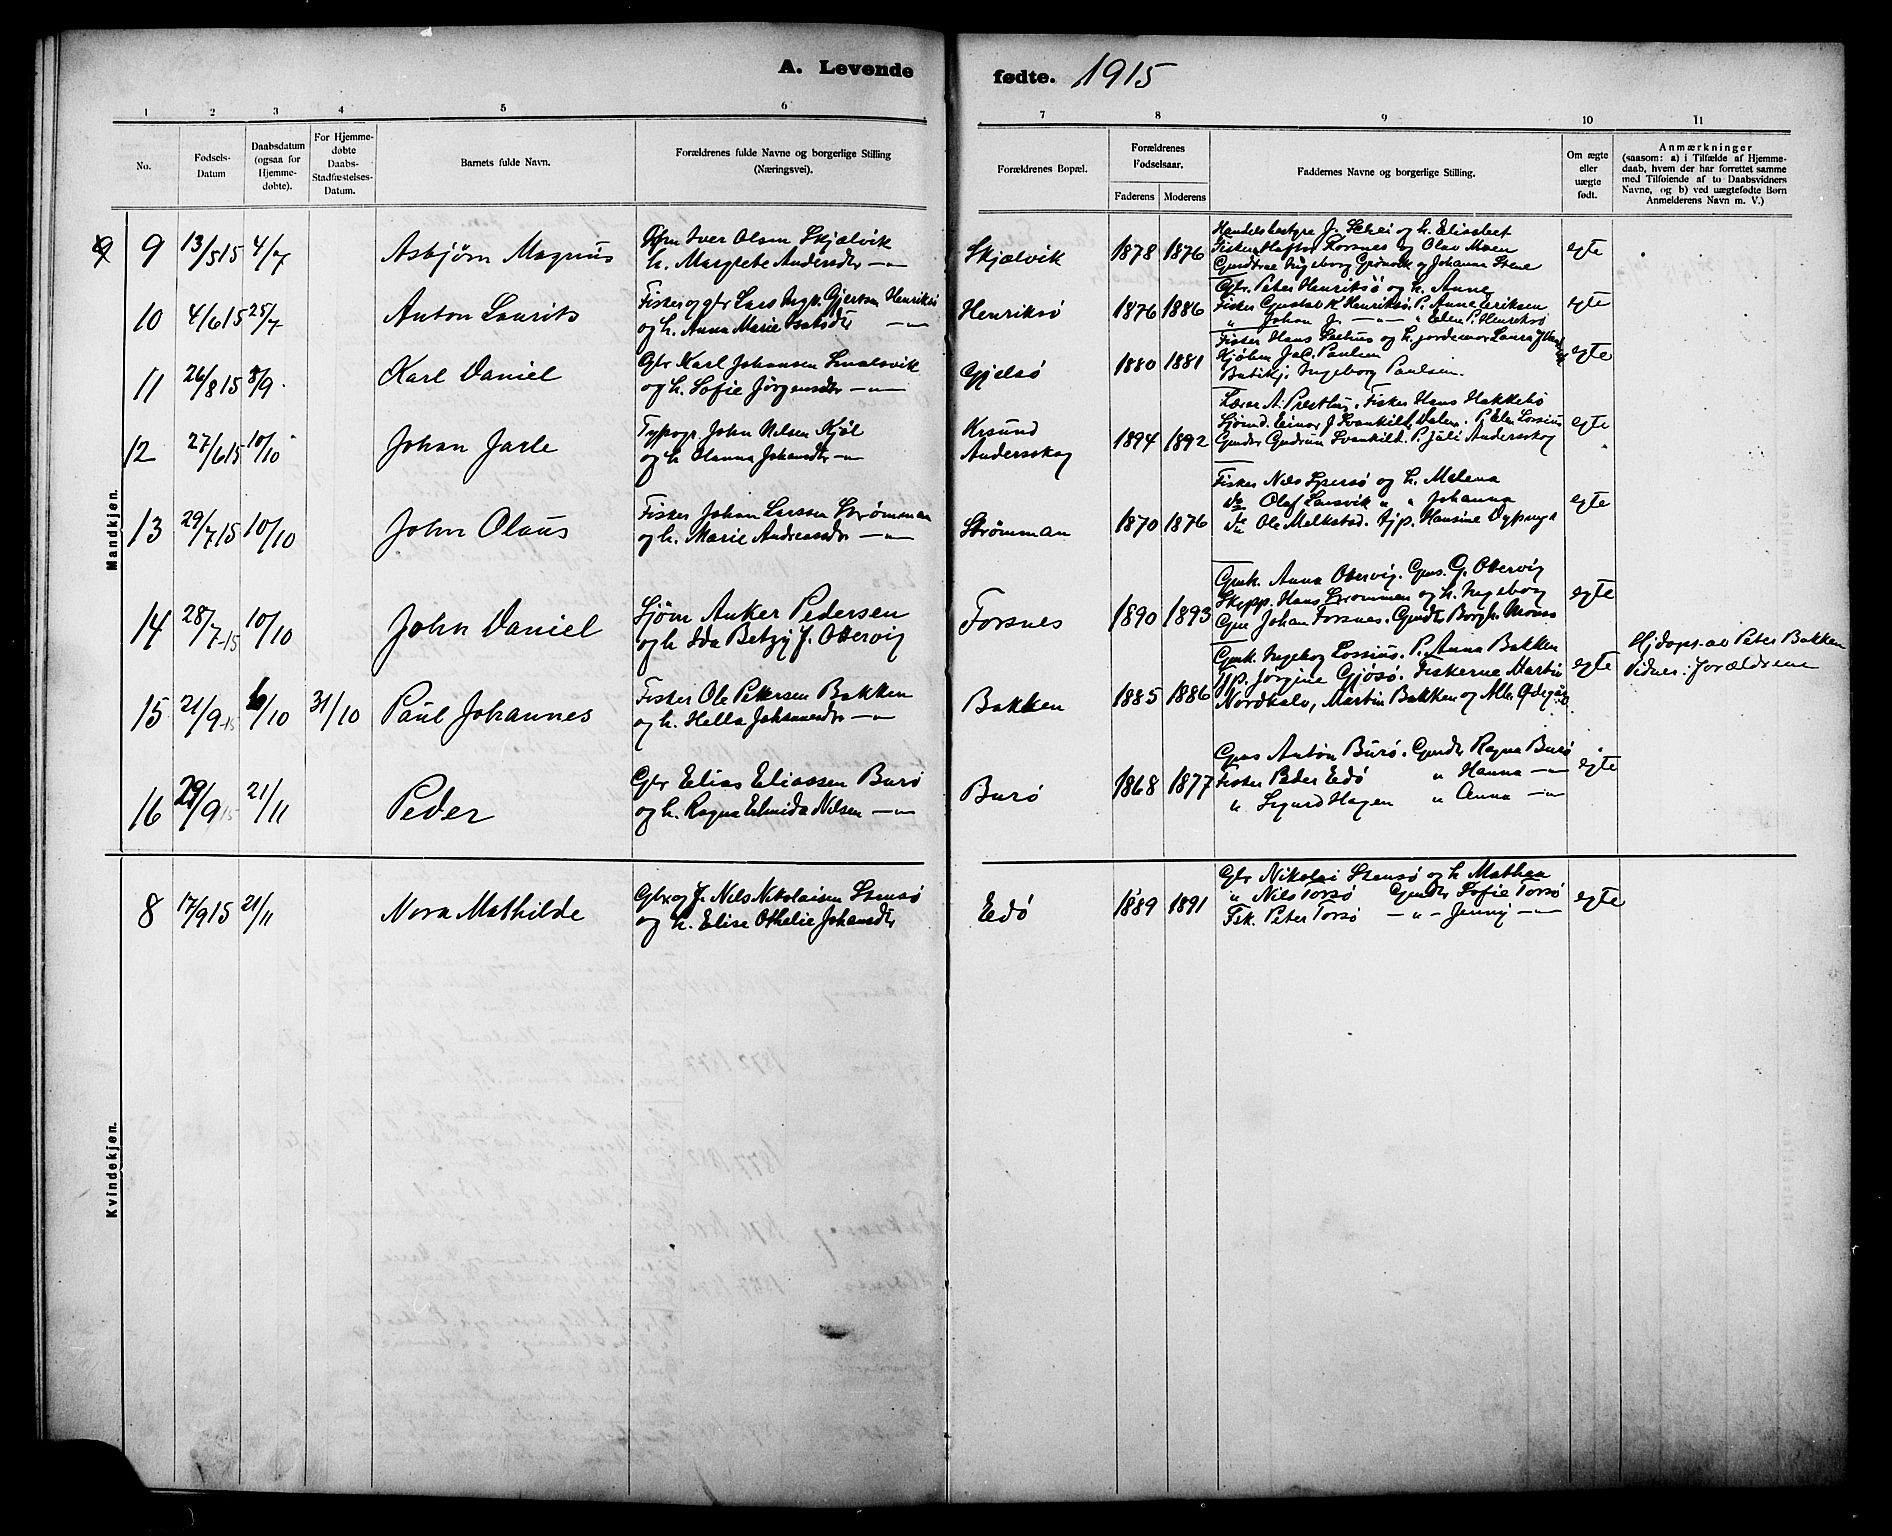 A. Levende
fødte. 1915
1 2 3 4 5 6 7 8 9 10 11
No.
Fødsels-
Datum
Daabsdatum
(ogsaa for
Hjemme-
døbte).
For Hjemme-
døbte
Daabs-
Stadfæstelses-
Datum.
Barnets fulde Navn.
Forældrenes fulde Navne og borgerlige Stilling
(Næringsvei).
Forældrenes Bopæl.
Forældrenes
Fødselsaar.
Faderens Moderens
Faddernes Navne og borgerlige Stilling.
Om ægte
eller
uægte
født.
Anmærkninger
(saasom: a) i Tilfælde af Hjemme-
daab, hvem der har forrettet samme
med Tilføiende af to Daabsvidners
Navne, og b) ved uægtefødte Børn
Anmelderens Navn m. V.)
Mandkjøn.
9 13/5 15 4/7
Asbjørn Magnus
Iver Olsen Skjælvik
h. Margrete Andersdtr —"—
Skjælvik
1878 1876
Handelsbestyr J. og h. Elisabet
Fisker Forsnes og Olav Moen
Ingeborg Grønvik og Johanna Stene
egte
10 4/6 15 25/7
Anton Laurits
Fisker og gbr Lars Ingv. Gjertsen Henriksø
og h. Anna Marie Isaksdtr —"—
Henriksø
1876 1886
Gbr. Peter Henriksø og h. Anne
Fisker Gustav K. Henriksø. P. Anne Eriksen
" Johan J. —"— " Elen P. Henriksø
egte
11 26/8 15 8/9
Karl Daniel
Gbr Karl Johansen Smalsvik
og h. Sofie Jørgensdtr —"—
Gjelsø
1880 1881
Fisker Hans og h. jordemor Laura
Kjøbm Jac. Paulsen
Butikj. Ingeborg Paulsen.
egte
12 27/6 15 10/10
Johan Jarle
Typogr John Nilsen Kjøl
og h Olanna Johansdtr —"—
Krsund
Andersskog
1894 1892
Lærer A. Presthus. Fisker Hans Hakkebø
Sjømd. Einar J. Svankild, Dalen. P. Elen Lossius
Gmdtr Gudrun Svankild. P. Juli Andersskog
egte
13 29/7 15 10/10
John Olaus
Fisker Johan Larssen Strømman
og h. Marie Andreasdtr —"—
Strømman
1870 1876
Fisker Nils og h. Malena
do Olaf Lansvik " " Johanna
do Ole Melkstad. Tjp. Hansine Dypsnya
egte
14 28/7 -15 10/10
John Daniel
Sjøm Anker Pedersen
og h Ida Betzy J. Otervig
Forsnes
1890 1893
Gmk. Anna Otervig. Gms. G. Otervig
Skipp. Hans Strømmen og h. Ingeborg
Gms Johan Forsnes. Gmdtr Borgh. Monsø
egte
15 21/9 -15 6/10 31/10
Paul Johannes
Fisker Ole Petersen Bakken
og h. Hella Johannesdtr —"—
Bakken
1885 1886
Gmk. Ingebog Lossius. P. Anna Bakken
Tjp. Jørgine Gjøsø. Fiskerne Martin
Nordkalv, Martin Bakken og Alb. Ødegård
egte
Hjdøpt av Peter Bakken
Vidner: Forældrene
16 29/9 15 21/11
Peder
Gbr Elias Eliassen Burø
og h. Ragna Elmida Nilsen —"—
Burø
1868 1877
Gms Anton Burø. Gmdtr Ragna Burø
Fisker Peder Edø " Hanna —"—
" Sigurd Hagen " Anna —"—
egte
Kvindekjøn.
8 17/9 15 21/11
Nora Mathilde
Gbr og f. Nils Nikolaisen Stensø
og h. Elise Othelie Johansdtr
Edø
1889 1891
Gbr Nikolai Stensø og h Mathea
" Nils Torsø Gmdtr Sofie Torsø
Fsk. Peter Torsø —"— Jenny —"—
egte